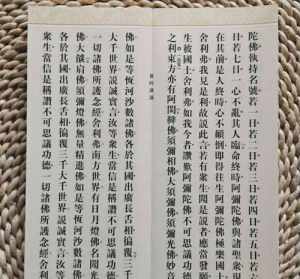 陀佛執持名號若一日若二日若三日若四日若五日若
日若七日一心不亂其人臨命終時阿彌陀佛與諸聖衆
在其前是人終時心不顛倒即得往生阿彌陀佛極樂國土
舍利弗我見是利故說此言若有衆生聞是說者應當發願
生彼國土舍利弗如我今者讚歎阿彌陀佛不可思議功德
之利東方亦有阿閦鞞佛須彌相佛大須彌佛須彌光佛妙音
佛如是等恒河沙數諸佛各於其國出廣長舌相徧覆三
大千世界說誠實言汝等衆生當信是稱讚不可思議功德
一切諸佛所護念經舍利弗南方世界有日月燈佛名聞光
佛大燄肩佛須彌燈佛無量精進佛如是等恒河沙數諸佛
各於其國出廣長舌相徧覆三千大千世界說誠實言汝等
衆生當信是稱讚不可思議功德一切諸佛所護念經舍